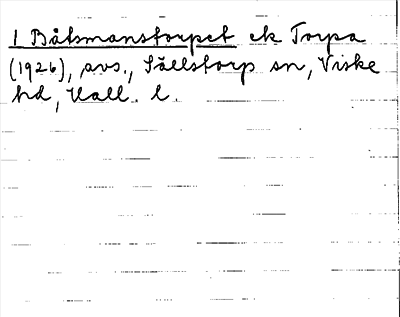 1 Båtsmanstorpet ek Torpa
(1926), avs., Sällstorp sn, Viske
hd, Hall. l.